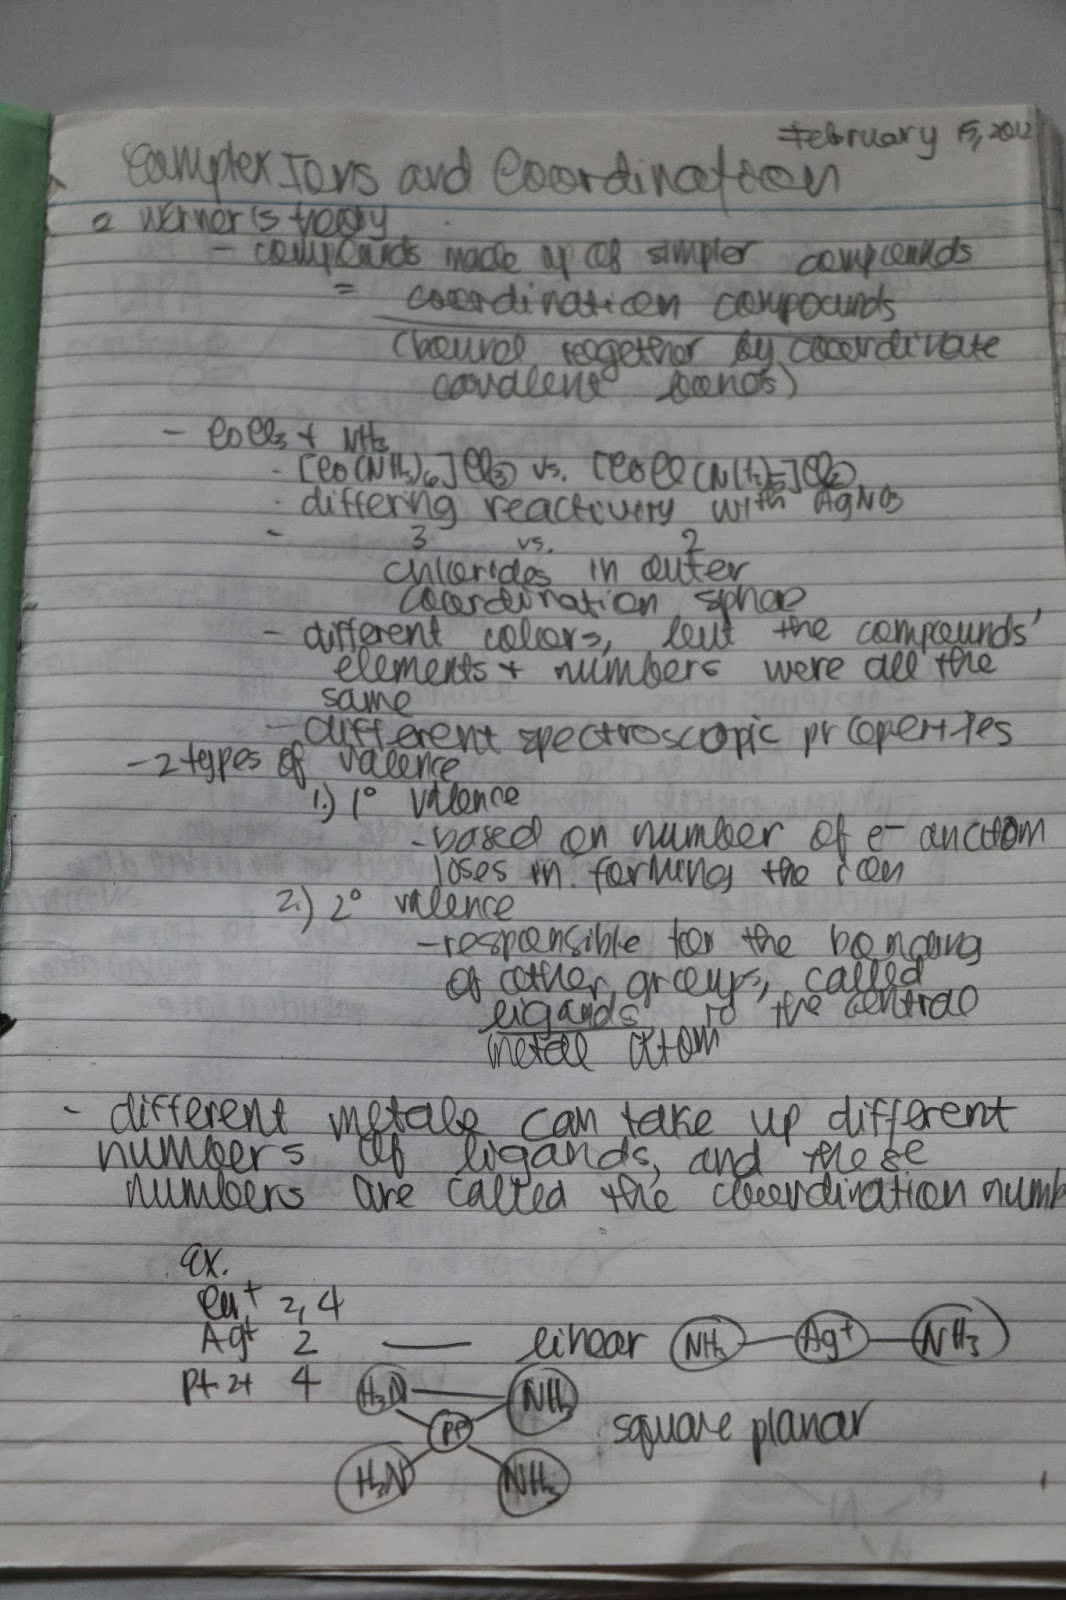 February 15, 2012
Complex Ions and Coordination
Werner's theory
- compounds made up of simpler compounds
= coordination compounds
(bound together by coordinate
covalent bonds)
- CoCl₃ + NH₃
- [Co(NH₃)₆]Cl₃ vs. [CoCl(NH₃)₅]Cl₂
- differing reactivity with AgNO₃
- 3 vs. 2
chlorides in outer
coordination sphere
- different colors, but the compounds'
elements + numbers were all the
same
- different spectroscopic properties
- 2 types of valence
1.) 1° valence
- based on number of e- an atom
loses in forming the ion
2.) 2° valence
- responsible for the bonding
of other groups, called
ligands to the central
metal atom
- different metals can take up different
numbers of ligands, and these
numbers are called the coordination numb
ex.
Cu⁺ 2, 4
Ag⁺ 2 — linear NH₃ — Ag⁺ — NH₃
Pt 2+ 4 H₃N NH₃
Pt square planar
H₃N NH₃